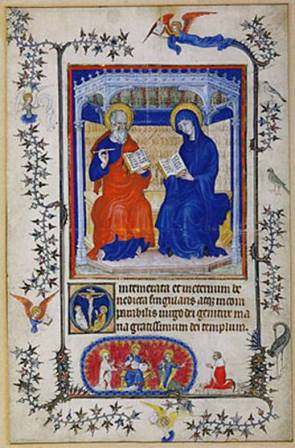 O intemerata et ineternum be
nedicta singularis atqꝫ incom
parabilis uirgo dei genitrix ma
ria gratissimum dei templum.